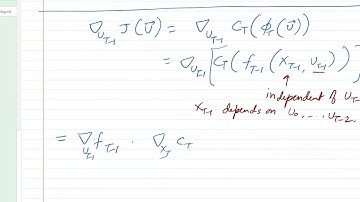 ∇_{U_{T-1}} J(U⃗) = ∇_{U_{T-1}} C_T(φ_T(U⃗))
= ∇_{U_{T-1}} [C_T(f_{T-1}(x_{T-1}, u_{T-1}))]
independent of U_T
x_{T-1} depends on u_0, ... u_{T-2}.
= ∇_{u_{T-1}} f_{T-1} · ∇_{x_T} C_T